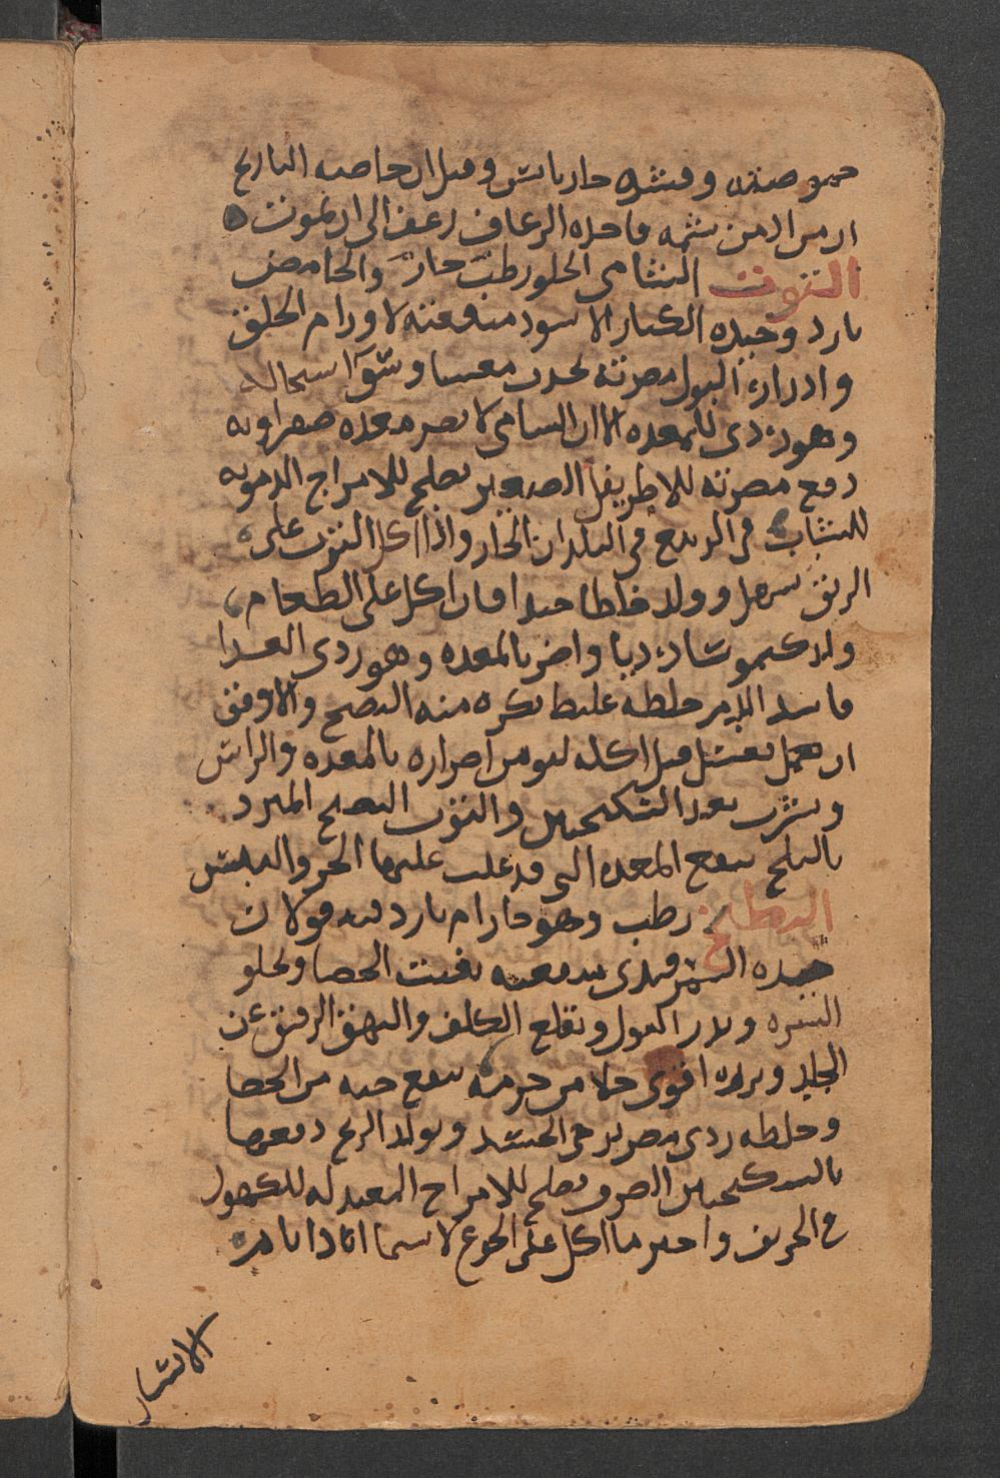 حموضته وقشره حار يابس وقيل ان خاصيه النارنج
ان من ادمن شمه فاخذه الرعاف رعف الى ان يموت ه
التوت الشامى الحلو رطب حار والحامض
بارد وجيده الكبار الاسود منفعته لاورام الحلق
وادرار البول مضرته يحدث مغسا وسؤا استحاله
وهو ردى للمعده الا ان الشامى لا يضر معده صفراويه
دفع مضرته للاطريفل الصغير يصلح للامزاج الدمويه
للشباب فى الربيع فى البلدان الحار واذا اكل التوت على
الريق سهل وولد خلطا جيدا فان اكل على الطعام
ولد كيموسا رديا واضر بالمعده وهو ردى الغدا
فاسد الدم خلطه غليظ يكره منه النضج والاوفق
ان يغسل قبل اكله ليومن اضراره بالمعده والراس
ويشرب بعد السكنجبين والتوت النضج المبرد
بالثلج ينفع المعده التى قد غلب عليها الحر واليبس
البطيخ رطب وهو حار ام بارد فيه قولان
جيده السمرقندى منفعته يفتت الحصا ويجلو
البشره ويدر البول ويقلع الكلف والبهق الرقيق عن
الجلد وبزره اقوى جلا من جرمه ينفع حبه من الحصا
وخلطه ردى يضر بر خى الجسد ويولد الريح دفعها
بالسكنجبين الصرف يصلح للامزاج المعتدله للكهول
فى الخريف واجود ما اكل على الجوع لا سيما اذا
الانسان